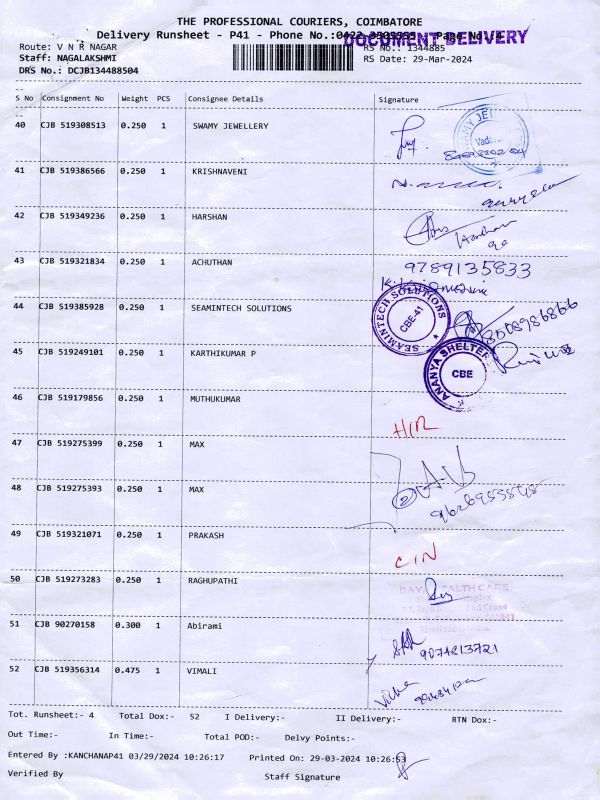 THE PROFESSIONAL COURIERS, COIMBATORE
Delivery Runsheet - P41 - Phone No.:0422 3505555 Page No.:4
DOCUMENT DELIVERY
Route: V N R NAGAR
RS No.: 1344885
Staff: NAGALAKSHMI
RS Date: 29-Mar-2024
DRS No.: DCJB134488504
S No Consignment No Weight PCS Consignee Details Signature
40 CJB 519308513 0.250 1 SWAMY JEWELLERY
41 CJB 519386566 0.250 1 KRISHNAVENI
42 CJB 519349236 0.250 1 HARSHAN
43 CJB 519321834 0.250 1 ACHUTHAN
9789135833
44 CJB 519385928 0.250 1 SEAMINTECH SOLUTIONS
SEAMINTECH SOLUTIONS
CBE-41
45 CJB 519249101 0.250 1 KARTHIKUMAR P
ANANYA SHELTER
CBE
46 CJB 519179856 0.250 1 MUTHUKUMAR
47 CJB 519275399 0.250 1 MAX
48 CJB 519275393 0.250 1 MAX
49 CJB 519321071 0.250 1 PRAKASH
CIN
50 CJB 519273283 0.250 1 RAGHUPATHI
51 CJB 90270158 0.300 1 Abirami
9074213721
52 CJB 519356314 0.475 1 VIMALI
Tot. Runsheet:- 4 Total Dox:- 52 I Delivery:- II Delivery:- RTN Dox:-
Out Time:- In Time:- Total POD:- Delvy Points:-
Entered By :KANCHANAP41 03/29/2024 10:26:17 Printed On: 29-03-2024 10:26:53
Verified By Staff Signature